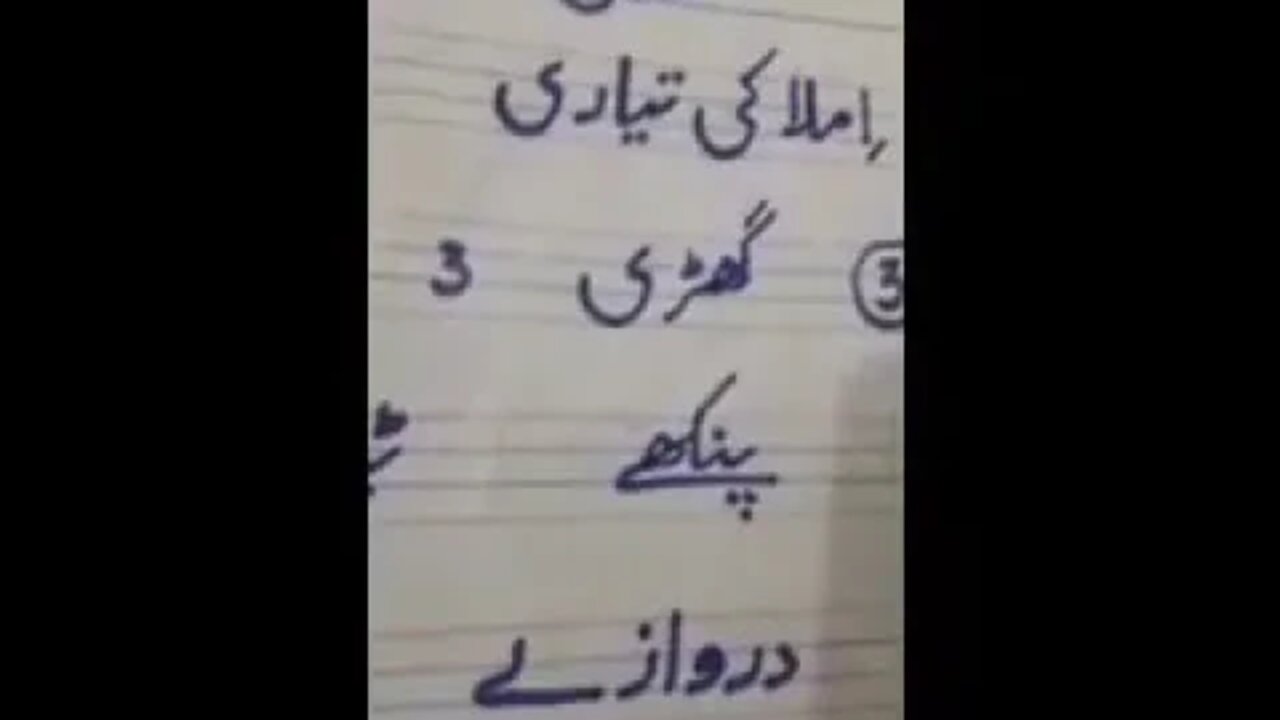 اِملا کی تیاری
3 گھڑی 3
پنکھے
دروازے